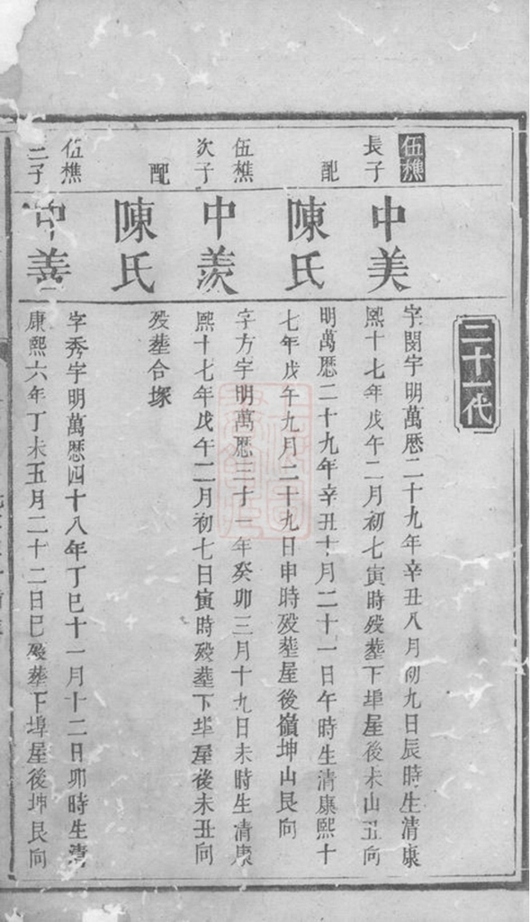 二十一代
伍樵
長子
中美
字閔宇明萬曆二十九年辛丑八月初九日辰時生清康
熙十七年戊午二月初七寅時殁塟下埠屋後未山丑向
配
陳氏
明萬曆二十九年辛丑十月二十一日午時生清康熙十
七年戊午九月二十九日申時殁塟屋後嶺坤山艮向
伍樵
次子
中羨
字方宇明萬曆三十一年癸卯三月十九日未時生清康
熙十七年戊午二月初七日寅時殁塟下埠屋後未丑向
配
陳氏
殁塟合塚
伍樵
三子
中善
字秀宇明萬曆四十八年丁巳十一月十二日卯時生清
康熙六年丁未五月二十二日巳殁塟下埠屋後坤艮向